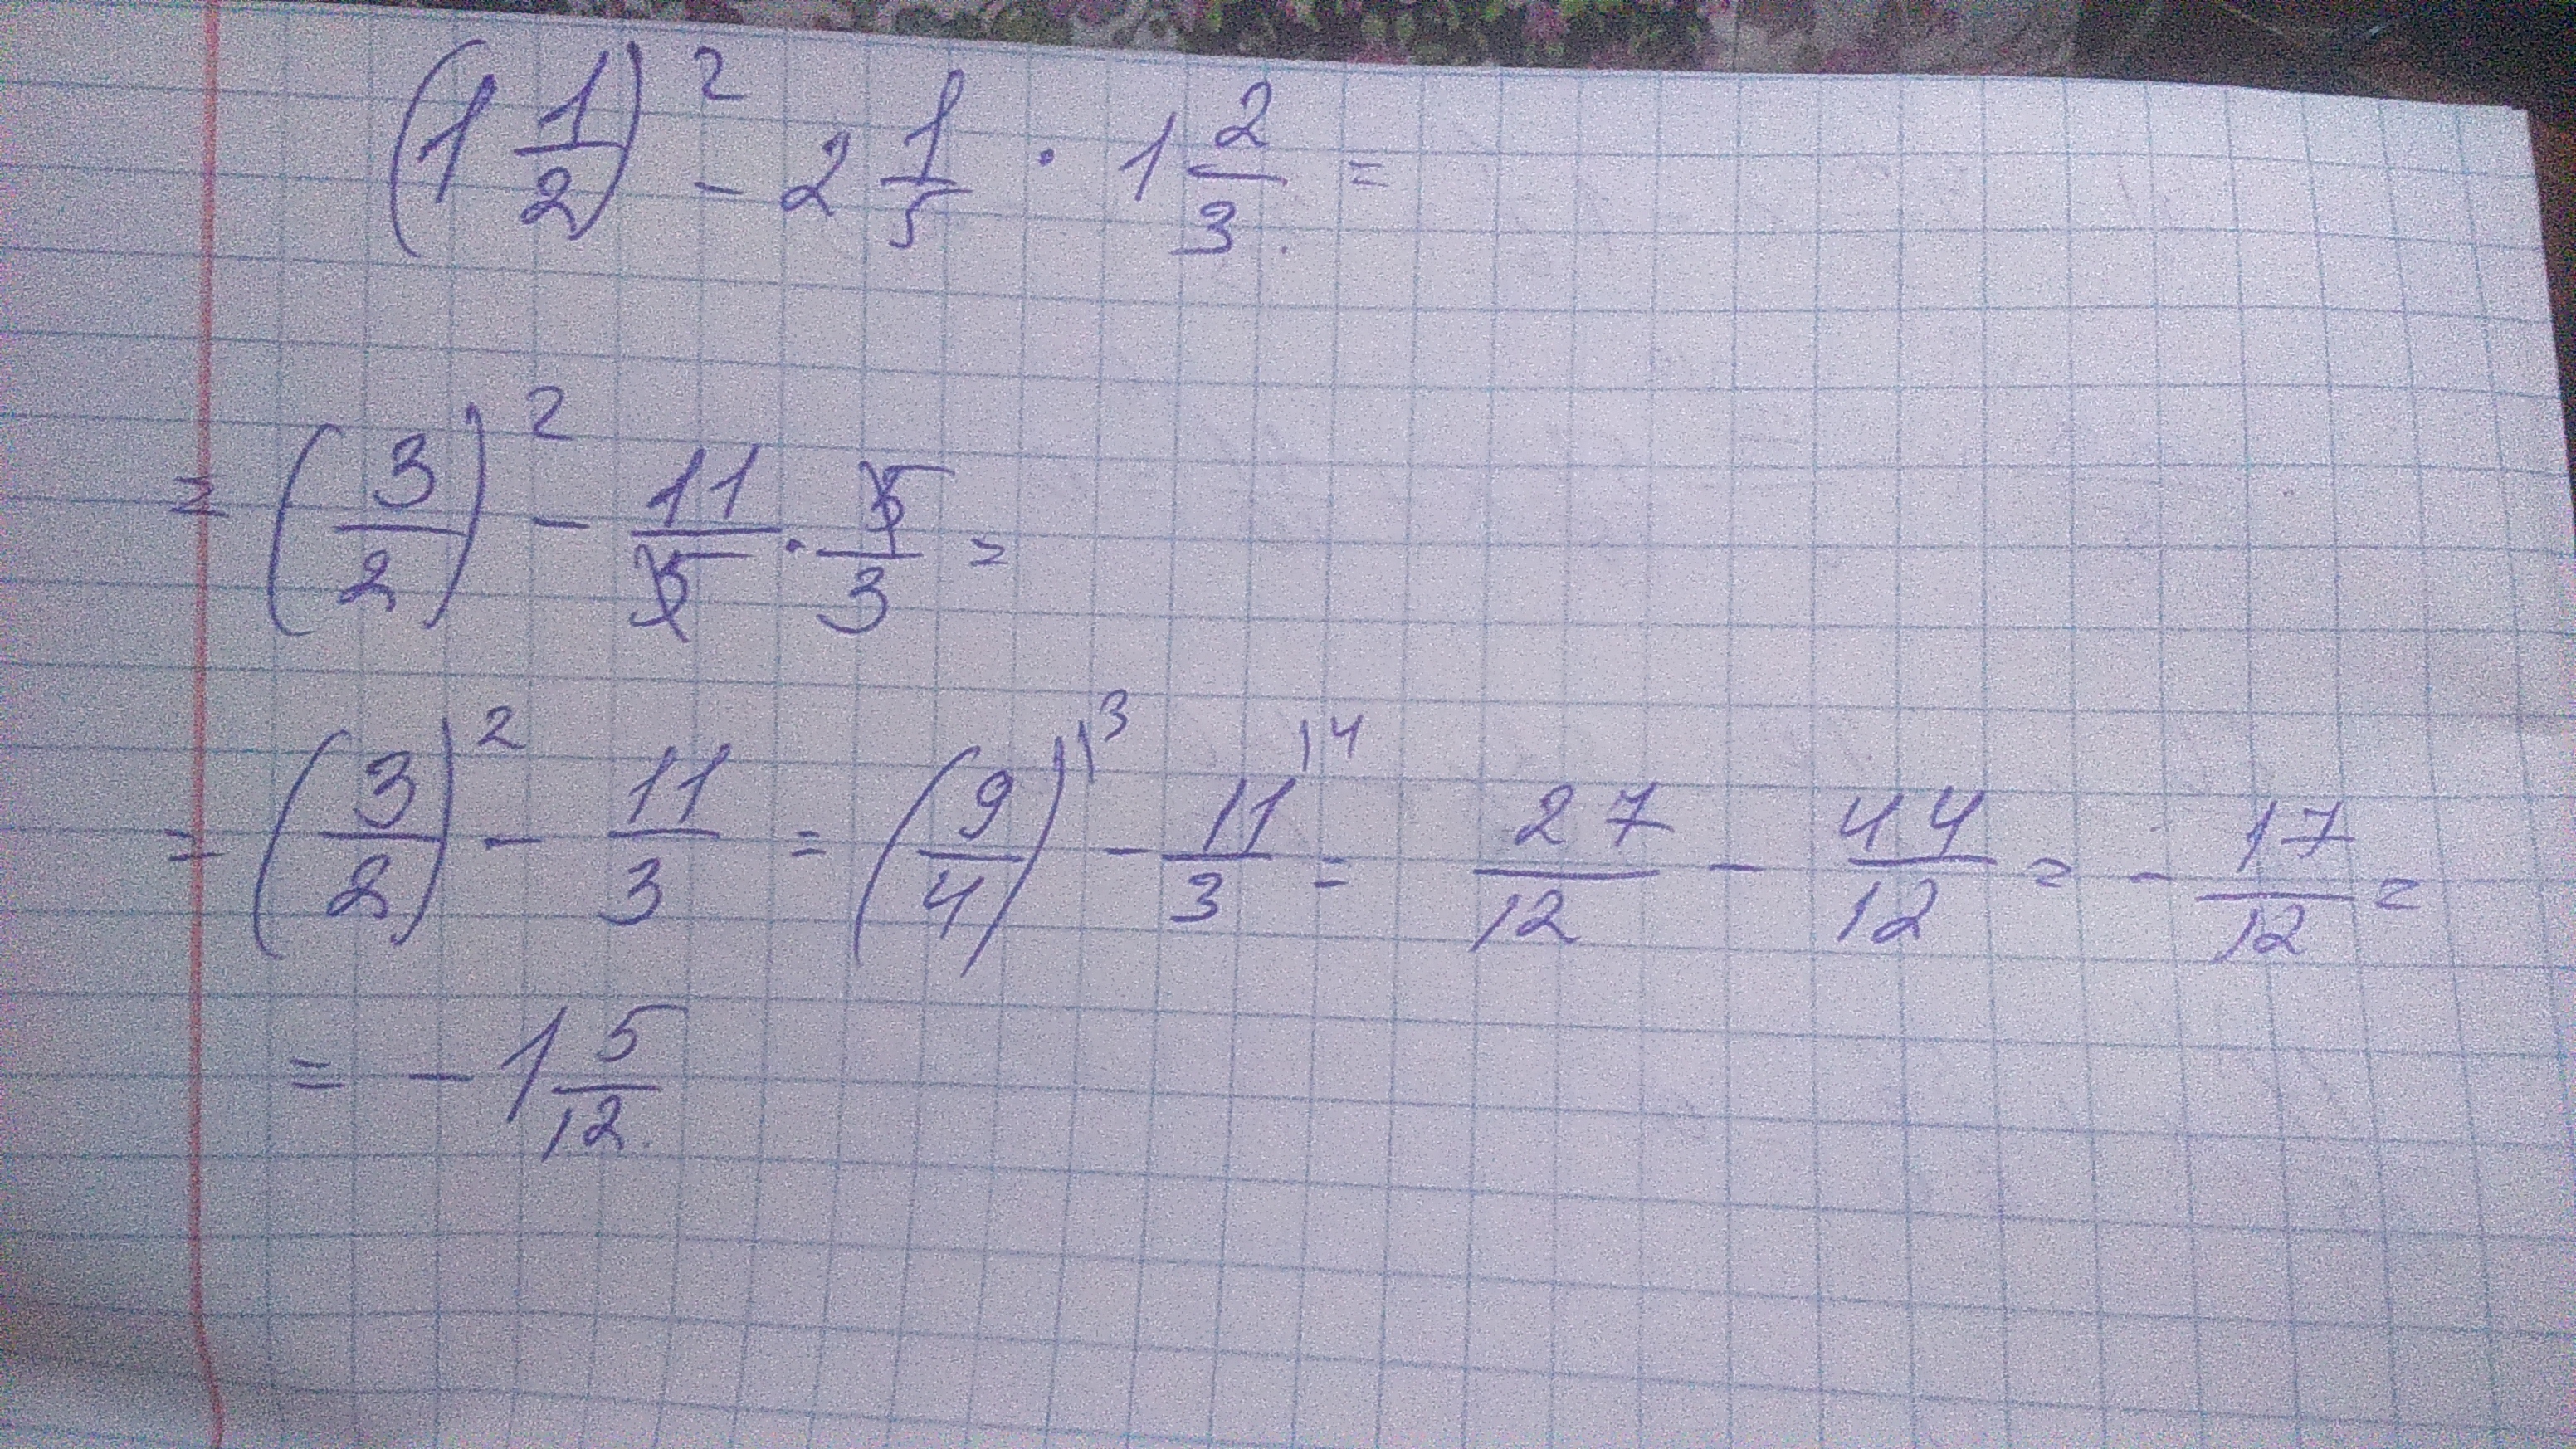 (1 1/2)² - 2 1/5 · 1 2/3 =
= (3/2)² - 11/5 · 5/3 =
= (3/2)² - 11/3 = (9/4)⁾³ - 11/3⁾⁴ = 27/12 - 44/12 = - 17/12 =
= - 1 5/12.